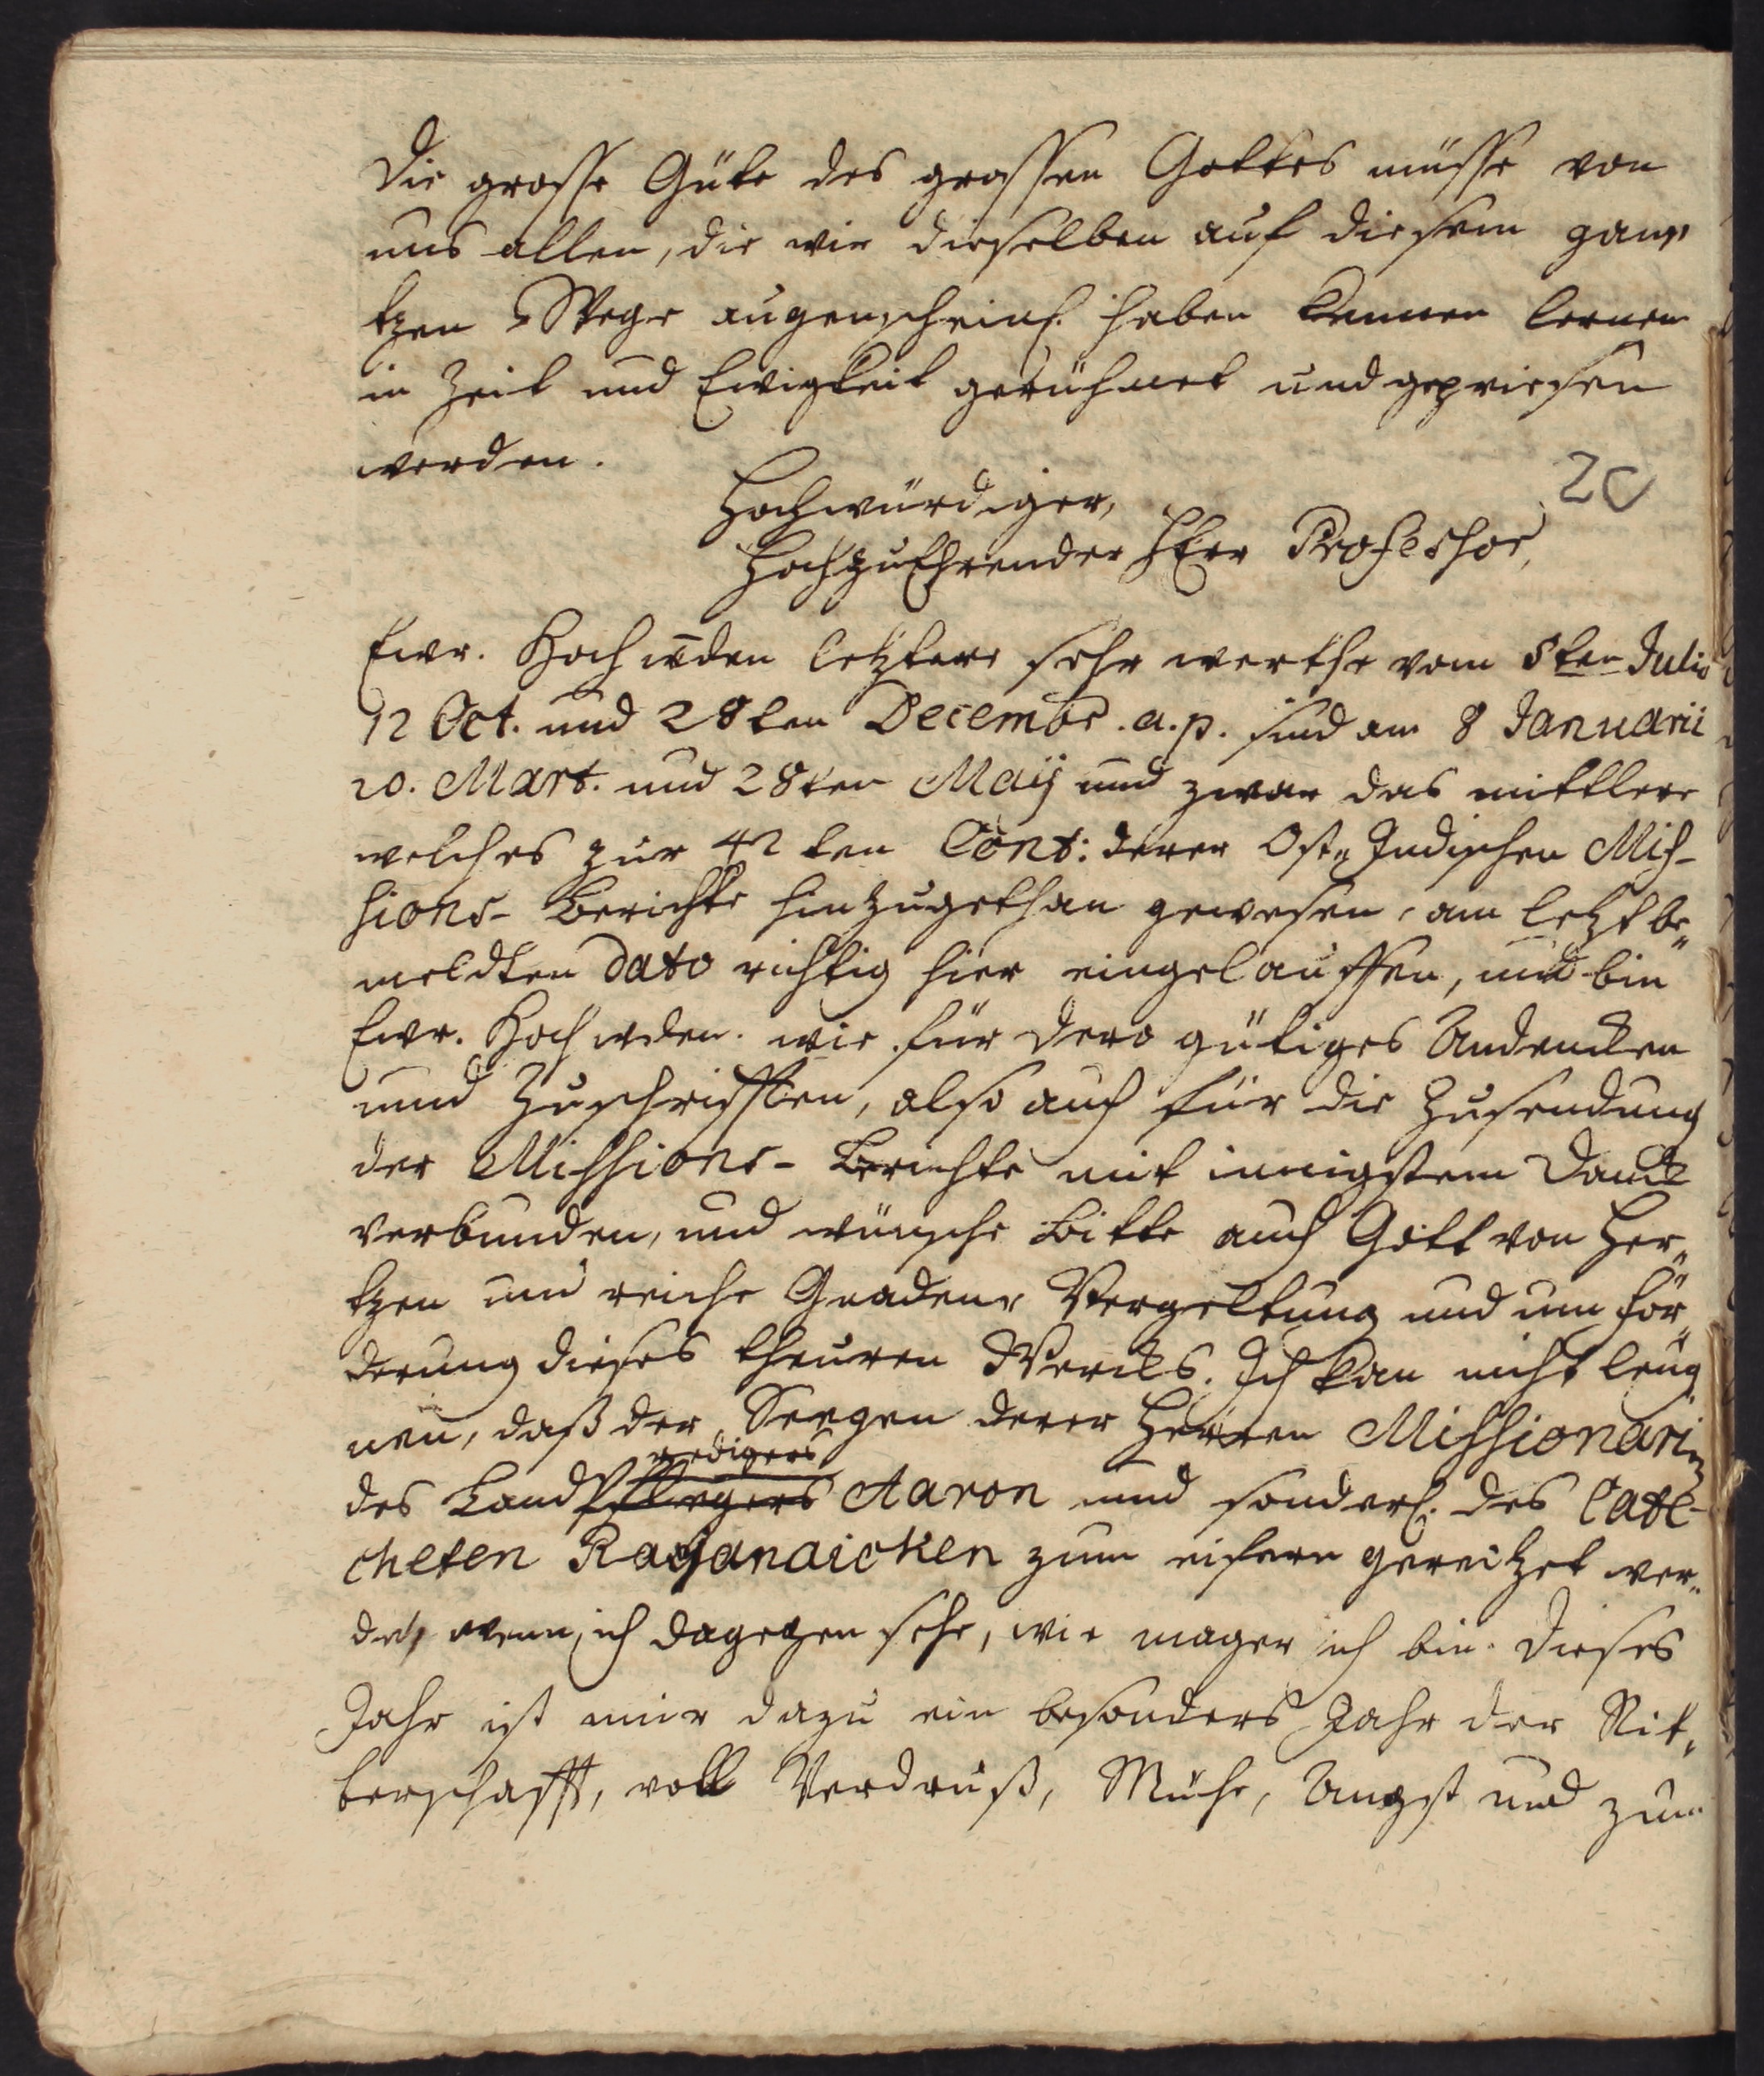 Die grosse Güte des grossen Gottes müsse von
uns allen, die wir dieselben auf diesem gan„
tzen Wege augenscheinl. haben kennen lernen
in Zeit und Ewigkeit gerühmet und gepriesen
werden.
20
Hochwürdiger,
HochzuEhrender HErr Professor,
Ewr. Hochwden letztere sehr werthe vom 5ten Julii
12 Oct. und 28ten Decembr. a. p. sind am 8 Januarii
20. Mart. und 28ten Maij und zwar das mittlere
welches zur 42ten Cont: derer Ost„Indischen Mis-
sions-Berichte hinzugethan gewesen, am letztbe„
meldten dato richtig hier eingelauffen, und bin
Ewr. Hochwden. wie für dero gütiges Andencken
und Zuschrifften, also auch für die Zusendung
der Missions-Berichte mit innigstem Danck
verbunden, und wünsche bitte auch Gott von Her„
tzen um reiche Gnaden„Vergeltung und um För„
derung dieses theuren Wercks. Ich kan nicht leug„
nen, daß der Seegen derer Herren Missionarien
redigers
des Landpflegers Aaron und sonderl. des Cate-
cheten Rajanaicken zum eifern gereitzet wer„
de, wenn ich dagegen sehe, wie mager ich bin. Dieses
Jahr ist mir dazu ein besonders Jahr der Rit„
terschafft, voll Verdruß, Mühe, Angst und zum